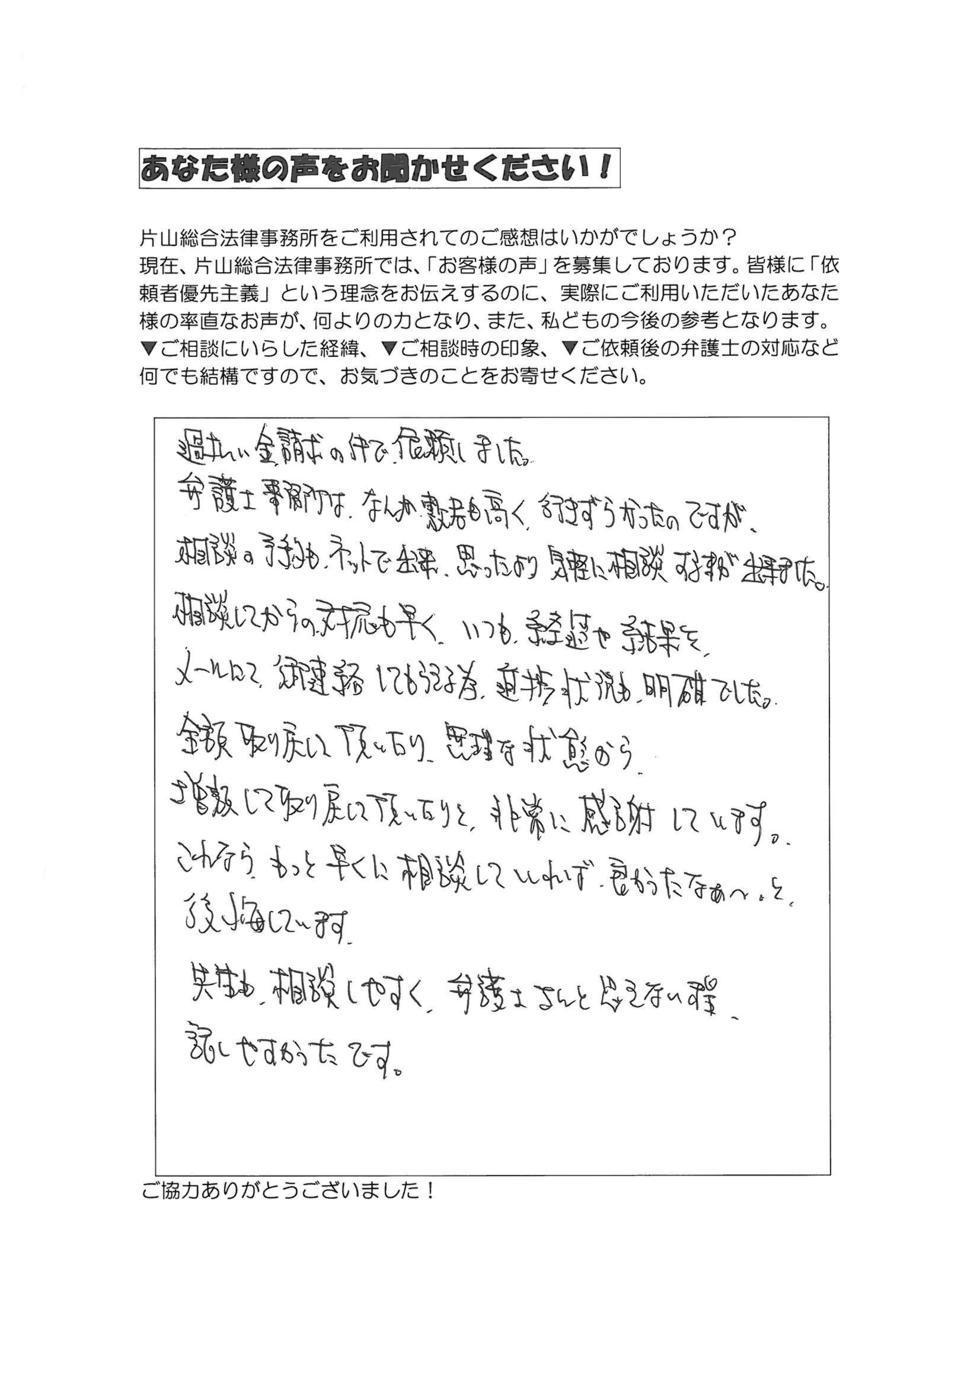 あなた様の声をお聞かせください！
片山総合法律事務所をご利用されてのご感想はいかがでしょうか？
現在、片山総合法律事務所では、「お客様の声」を募集しております。皆様に「依
頼者優先主義」という理念をお伝えするのに、実際にご利用いただいたあなた
様の率直なお声が、何よりの力となり、また、私どもの今後の参考となります。
▼ご相談にいらした経緯、▼ご相談時の印象、▼ご依頼後の弁護士の対応など
何でも結構ですので、お気づきのことをお寄せください。
過払い金請求の件で、依頼しました。
弁護士事務所は、なんか敷居も高く、行きずらかったのですが、
相談の予約も、ネットで出来、思ったより気軽に相談する事が出来ました。
相談してからの、対応も早く、いつも、経過や結果を、
メールにて、御連絡してもらえる為、進捗状況も、明確でした。
全額取り戻して頂いたり、な状態から、
増額して取り戻して頂いたりと、非常に感謝しています。
これなら、もっと早くに相談していれば、良かったなぁ〜。と、
後悔しています。
先生も、相談しやすく、弁護士さんと思えない程、
話しやすかったです。
ご協力ありがとうございました！